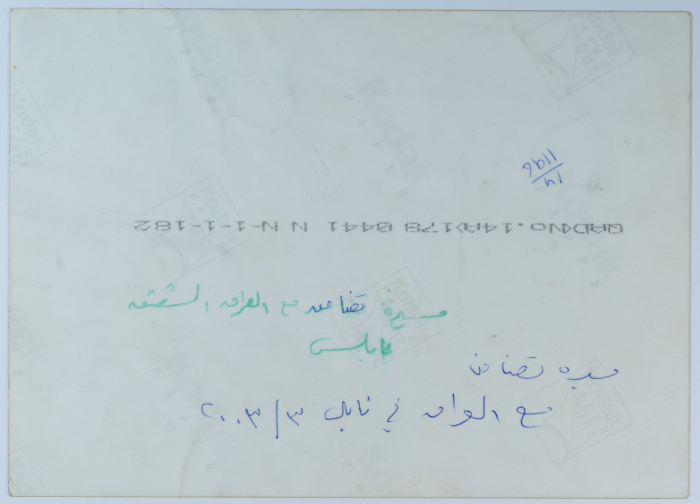 14/1196
QAD<No.14A>178 0441 N N-1-1-182
مسيرة تضامن مع العراق الشقيق
نابلس
مسيره تضامن
مع العراق في نابلس ٢٠٠٣/٣